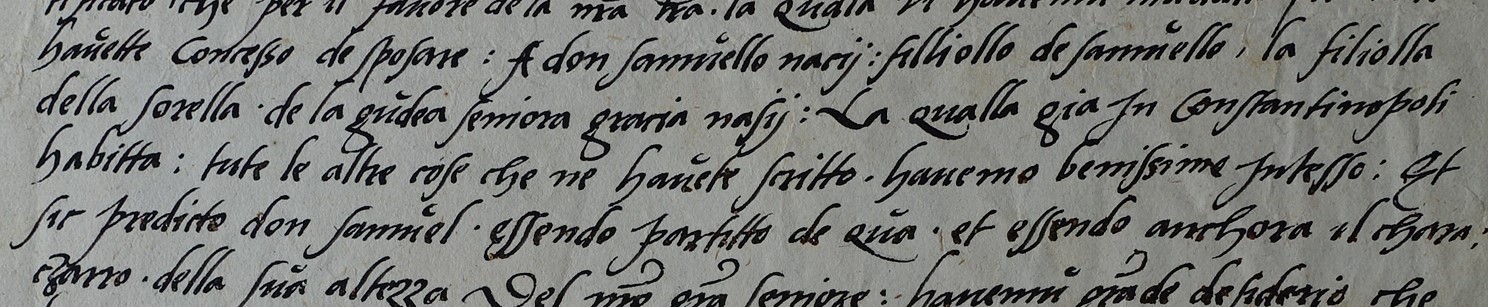 che per il favore de la nra tra . la Quala vi
havette Concesso de sposare : A don samuello nacij : filliollo de samuello , la filiolla
della sorella . de la giudea seniora gracia nasij : La qualla gia In Constantinopoli
habitta : tute le altre cose che ne havete scritto . havemo benissime Intesso : Et
sic predicto don samuel . essendo partitto de Qua . et essendo anchora il chara:
czarro . della sua altezza Del seniore : havemu desiderio che